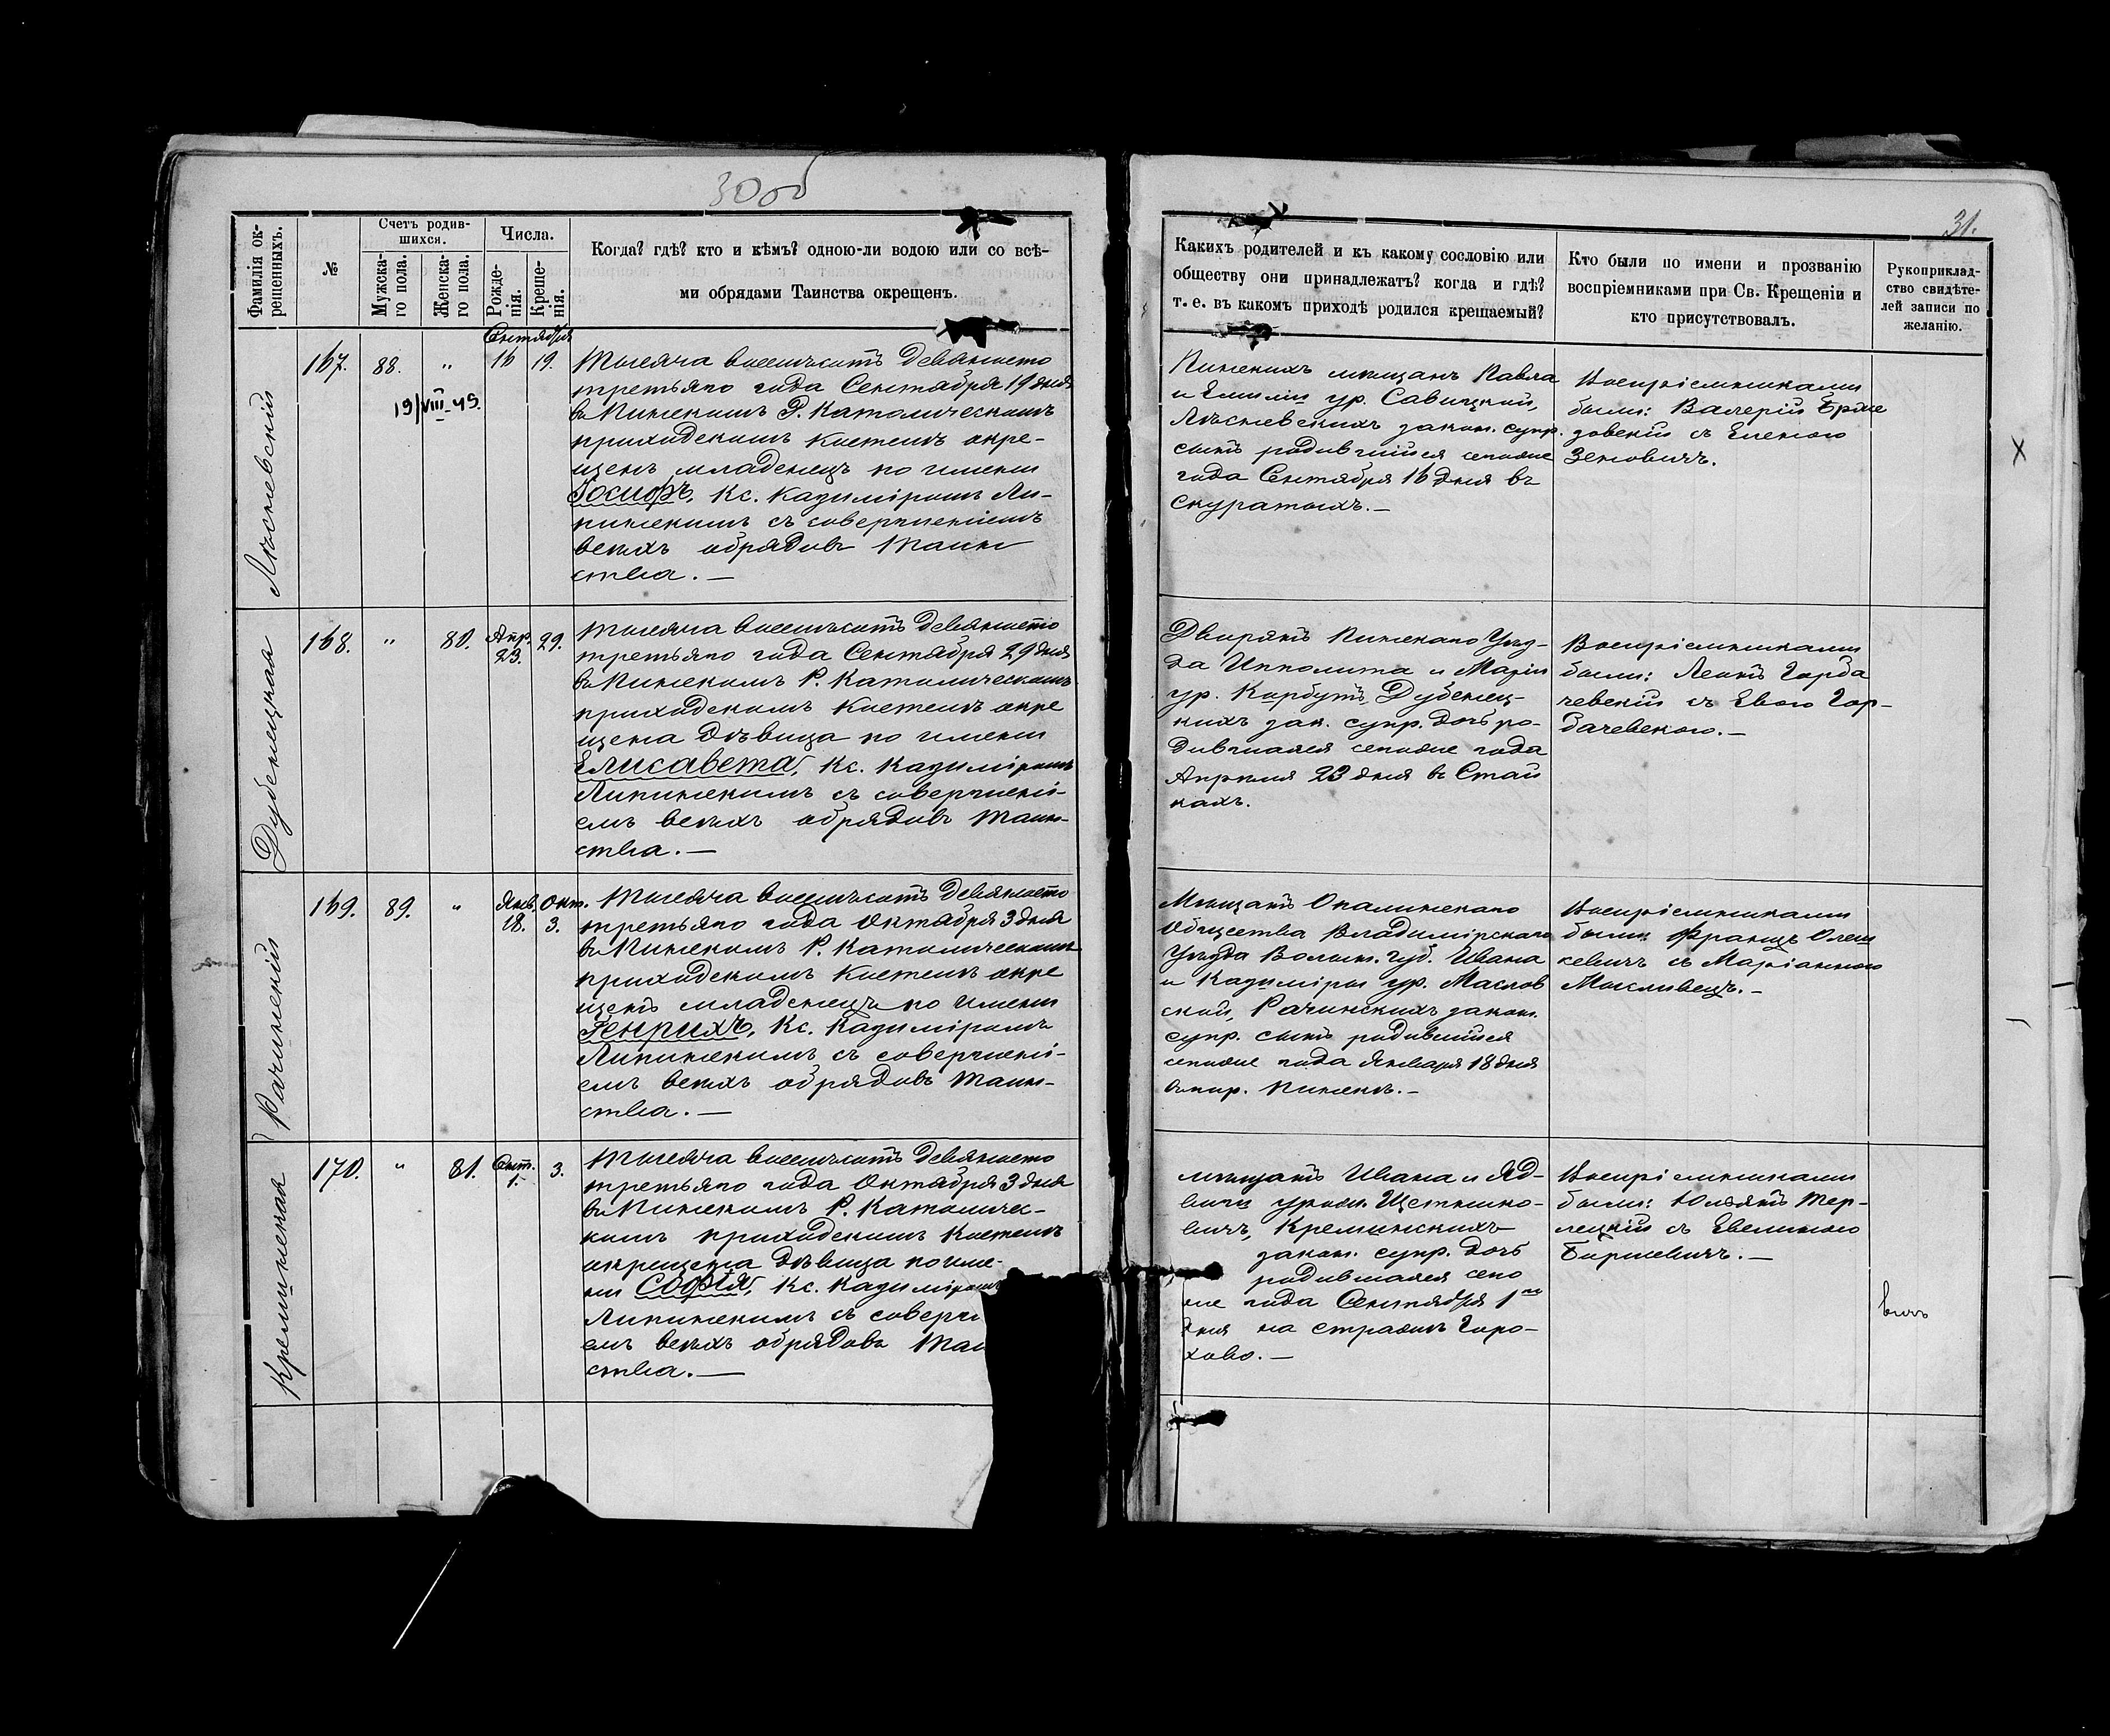 30об
Фамилія ок-
рещенныхъ.
№
Счетъ родив-
шихся.
Мужска-
го пола.
Женска-
го пола.
Числа.
Рожде-
нія.
Креще-
нія.
Когда? гдѣ? кто и кѣмъ? одною-ли водою или со всѣ-
ми обрядами Таинства окрещенъ.
Лѣсневскій
167.
88.
"
19/VIII-49.
Сентября
16
19.
Тысяча восемьсотъ девяносто
третьяго года Сентября 19 дня
въ Пинскомъ Р. Католическомъ
приходскомъ костелѣ окре-
щенъ младенецъ по имени
Іосифъ, Кс. Казиміромъ Ли-
пинскимъ съ совершеніемъ
всѣхъ обрядовъ Таин
ства. —
Дубенецкая
168.
"
80.
Апр.
23.
29.
Тысяча восемьсотъ девяносто
третьяго года Сентября 29 дня
въ Пинскомъ Р. Католическомъ
приходскомъ костелѣ окре
щена дѣвица по имени
Елисавета, Кс. Казиміромъ
Липинскимъ съ совершені-
емъ всѣхъ обрядовъ Таин-
ства. —
Рачинскій
169.
89.
"
Янв.
18.
Окт.
3.
Тысяча восемьсотъ девяносто
третьяго года Октября 3 дня
въ Пинскомъ Р. Католическомъ
приходскомъ костелѣ окре
щенъ младенецъ по имени
Генрихъ, Кс. Казиміромъ
Липинскимъ съ совершені-
емъ всѣхъ обрядовъ Таин-
ства. —
Кремпинская
170.
"
81.
Сент.
1.
3.
Тысяча восемьсотъ девяносто
третьяго года Октября 3 дня
въ Пинскомъ Р. Католичес-
комъ приходскомъ костелѣ
окрещена дѣвица по име-
ни Софія, Кс. Казиміромъ
Липинскимъ съ соверш
емъ всѣхъ обрядовъ Таи
ства. —
31.
Какихъ родителей и къ какому сословію или
обществу они принадлежатъ? когда и гдѣ?
т. е. въ какомъ приходѣ родился крещаемый?
Кто были по имени и прозванію
воспріемниками при Св. Крещеніи и
кто присутствовалъ.
Рукоприклад-
ство свидѣте-
лей записи по
желанію.
Пинскихъ мѣщанъ Павла
и Емиліи ур. Савицкой,
Лѣсневскихъ закон. супр.
сынъ родившійся сегоже
года Сентября 16 дня въ
Скуратахъ. —
Воспріемниками
были: Валерій
довскій съ Еленою
Зеновичъ.
Дворянъ Пинскаго Уѣз-
да Ипполита и Маріи
ур. Корбутъ, Дубенец-
кихъ зак. супр. дочь ро-
дившаяся сегоже года
Апрѣля 23 дня въ Стай
кахъ.
Воспріемниками
были: Леонъ Горба
чевскій съ Евою Гор-
бачевскою. —
Мѣщанъ Опалинскаго
Общества Владимірскаго
Уѣзда Волын. губ. Ивана
и Казиміры ур. Маслов
ской, Рачинскихъ закон.
супр. сынъ родившійся
сегоже года Января 18 дня
въ гор. Пинскѣ. —
Воспріемниками
были: Францъ Олеш
кевичъ съ Маріанною
Мысливецъ. —
мѣщанъ Ивана и Яд-
виги урожд. Щетино-
вичъ, Кремпинскихъ
закон. супр. дочь
родившаяся сего
же года Сентября 1го
дня на стражѣ Горо-
хово. —
Воспріемниками
были: Юльянъ Тер-
лецкій съ Евелиною
Биршевичъ. —
вичъ